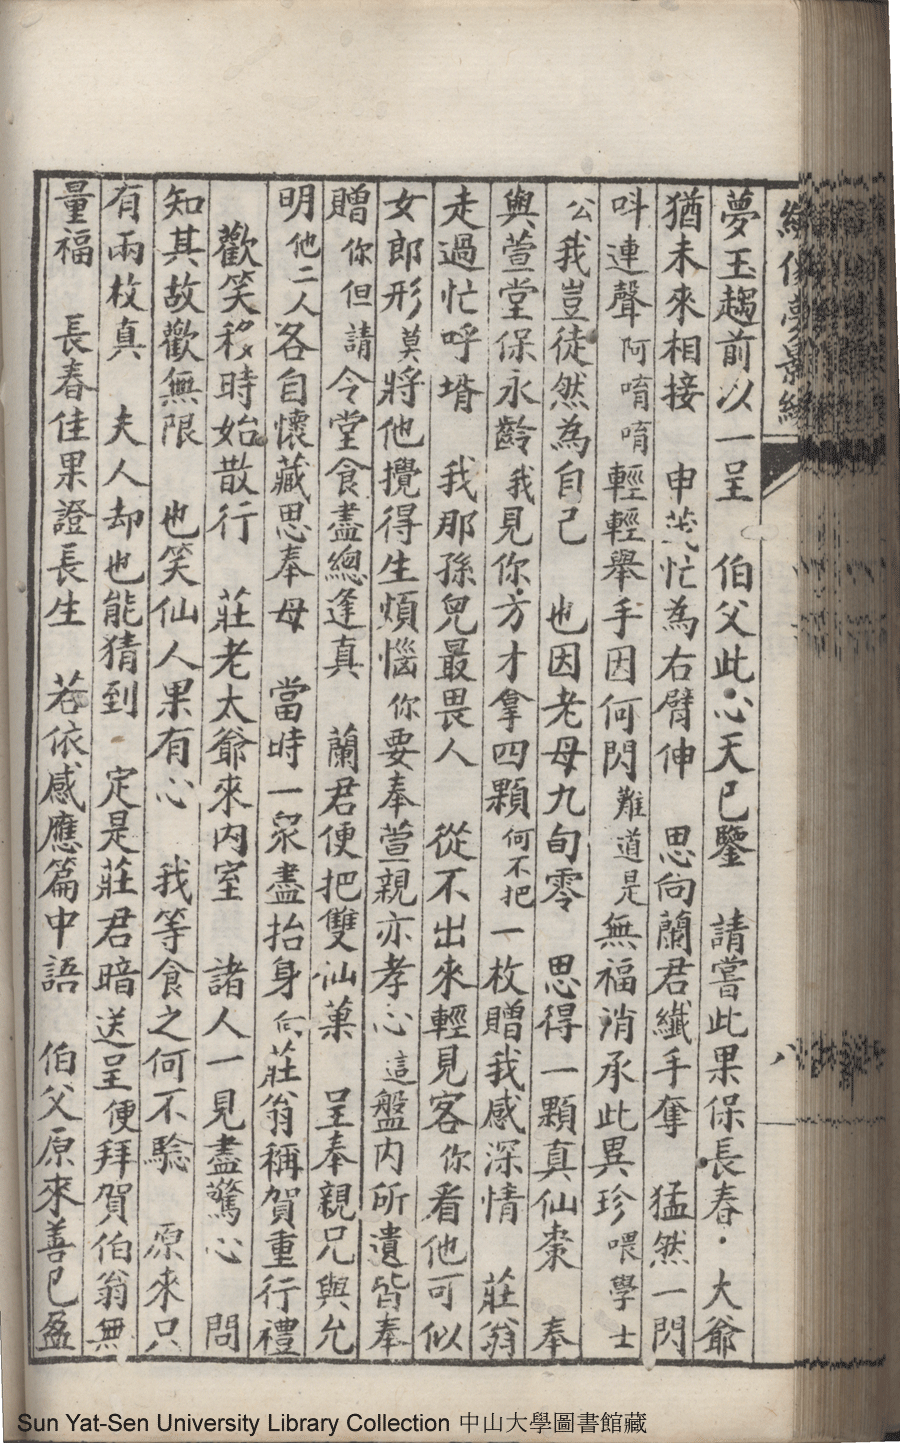 夢玉趨前以一呈　伯父此心天已鑒　請嘗此果保長春　大爺
猶未來相接　申茂忙為右臂伸　思向蘭君纖手奪　猛然一閃
呌連聲阿唷唷輕輕舉手因何閃難道是無福消承此異珍喂學士
公我豈徒然為自己　也因老母九旬零　思得一顆真仙棗　奉
與萱堂保永齡我見你方才拿四顆何不把一枚贈我感深情　莊翁
走過忙呼壻　我那孫兒最畏人　從不出來輕見客你看他可似
女郎形莫將他攪得生煩惱你要奉萱親亦孝心這盤內所遺皆奉
贈你但請令堂食盡總逢真　蘭君便把雙仙菓　呈奉親兄與允
明他二人各自懷藏思奉母　當時一衆盡抬身向莊翁稱賀重行禮
歡笑移時始散行　莊老太爺來內室　諸人一見盡驚心　問
知其故歡無限　也笑仙人果有心　我等食之何不驗　原來只
有兩枚真　夫人却也能猜到　定是莊君暗送呈便拜賀伯翁無
量福　長春佳果證長生　若依感應篇中語　伯父原來善已盈
八
Sun Yat-Sen University Library Collection 中山大學圖書館藏